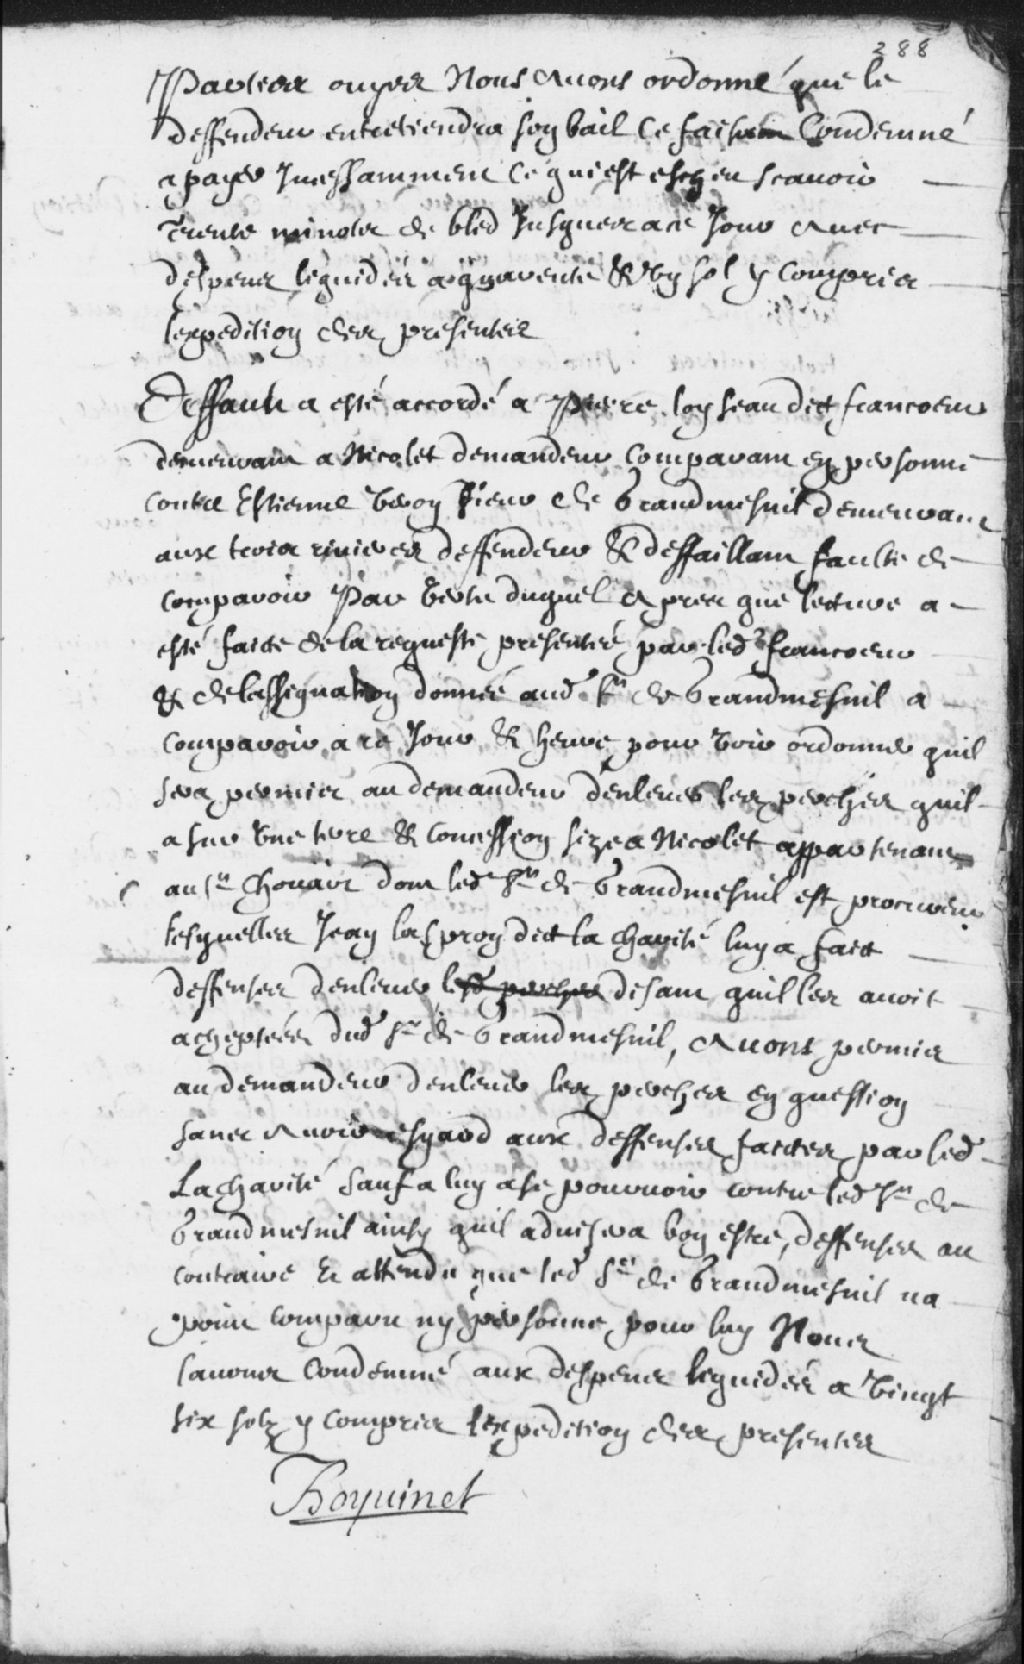 288
Parties ouyes Nous Avons ordonné que le
deffendeur entretiendra son bail Ce faisant Condemné
a payer Incessamment Ce qui est escheu scavoir
Trente minots de bled Jusques a ce Jour Avec
despens liquidés a quarente & un sol y Compris
lexpedition des presentes
Deffault a esté accordé a Pierre loyseau dict francoeur
demeurant a Nicolet demandeur Comparant en personne
Contre Estienne Veron Sieur de Grandmesnil demeurant
aux trois rivieres deffendeur & deffaillant faulte de
comparoir Par Vertu duquel Apres que lecture a
esté faicte de la requeste presentée par led francoeur
& de lassignation donnée aud Sr de Grandmesnil a
comparoir a ce Jour & heure pour Voir ordonner quil
sera permis au demandeur denlever les perches quil
a sur Une terre & Concession size a Nicolet appartenant
au Sr Chouart dont led Sr de Grandmesnil est procureur
lesquelles Jean laspron dict la charité luy a faict
deffenses denlever lesd perches disant quil les avoit
acheptées dud Sr de Grandmesnil, Avons permis
au demandeur denlever les perches en question
sans Avoir esgard aux deffenses faictes par led
La charité Sauf a luy a se pourvoir contre led Sr de
Grandmesnil ainsy quil advisera bon estre, deffenses au
contraire Et attendu que led Sr de Grandmesnil na
point comparu ny personne pour luy Nous
lavons Condemné aux despens liquidés a Vingt
six solz y Compris lexpedition des presentes
Boyvinet